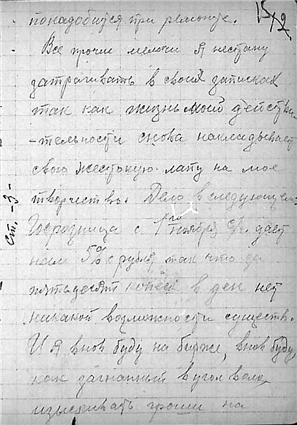 15/2
понадобится при ремонте.
Все прочи мелочи Я нестану
затрагивать в своих записках
так как жизнь моей действи-
-тельности снова накладывает
свою жестокую лапу на мое
творчество. Дело в следующем
с 1го ноября дает
нам 5% с рубля, так что за
пятьдесят копеек в ден нет
никакой возможности существ.
И я внов буду на бирже, внов буду
как загнанный в угол
изыскивать гроши на
Ст. -3-